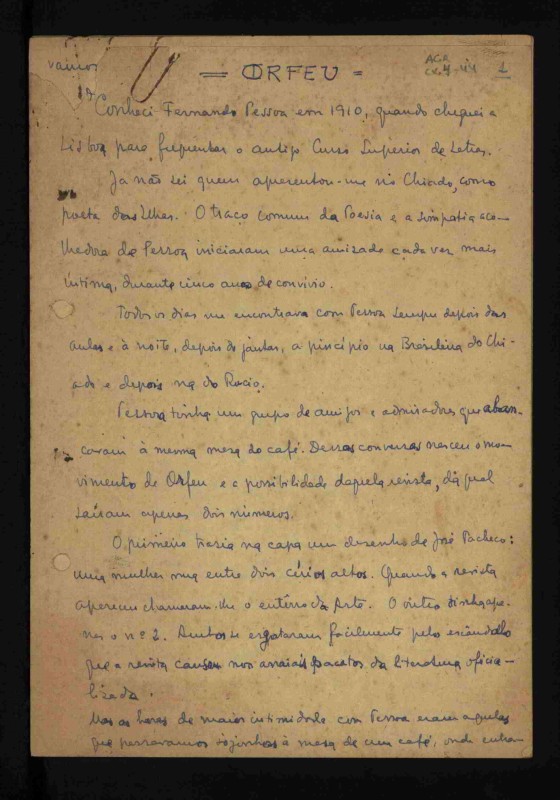 vamos
= ORFEU =
1
Conheci Fernando Pessoa em 1910, quando cheguei a
Lisboa para frequentar o antigo Curso Superior de Letras.
Já não sei quem apresentou-me no Chiado, como
poeta das Ilhas. O traço comum da Poesia e a simpatia aco-
lhedora de Pessoa iniciaram uma amizade cada vez mais
íntima, durante cinco anos de convivio.
Todos os dias me encontrava com Pessoa sempre depois das
aulas e à noite, depois do jantar, a princípio na Brasileira do Chi-
ado e depois na do Rocio.
Pessoa tinha um grupo de amigos e admiradores que aban-
cavam à mesma mesa do café. Dessas conversas nasceu o mo-
vimento de Orfeu e a possibilidade daquela revista, da qual
saíram apenas dois números.
O primeiro trazia na capa um desenho de José Pacheco:
uma mulher nua entre dois círios altos. Quando a revista
apareceu chamaram-lhe o entêrro da Arte. O outro tinha ape-
nas o nº 2. Ambos se esgotaram facilmente pelo escândalo
que a revista causou nos arraiais pacatos da literatura oficia-
lizada.
Mas as horas de maior intimidade com Pessoa eram aquelas
que passavamos sòzinhos à mesa de um café, onde